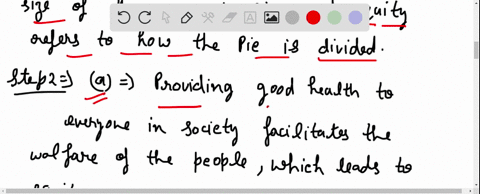 size of
refers to how the Pie is divided.
Step2⇒ (a) ⇒ Providing good health to
everyone in society facilitates the
walfare of the people, which leads to